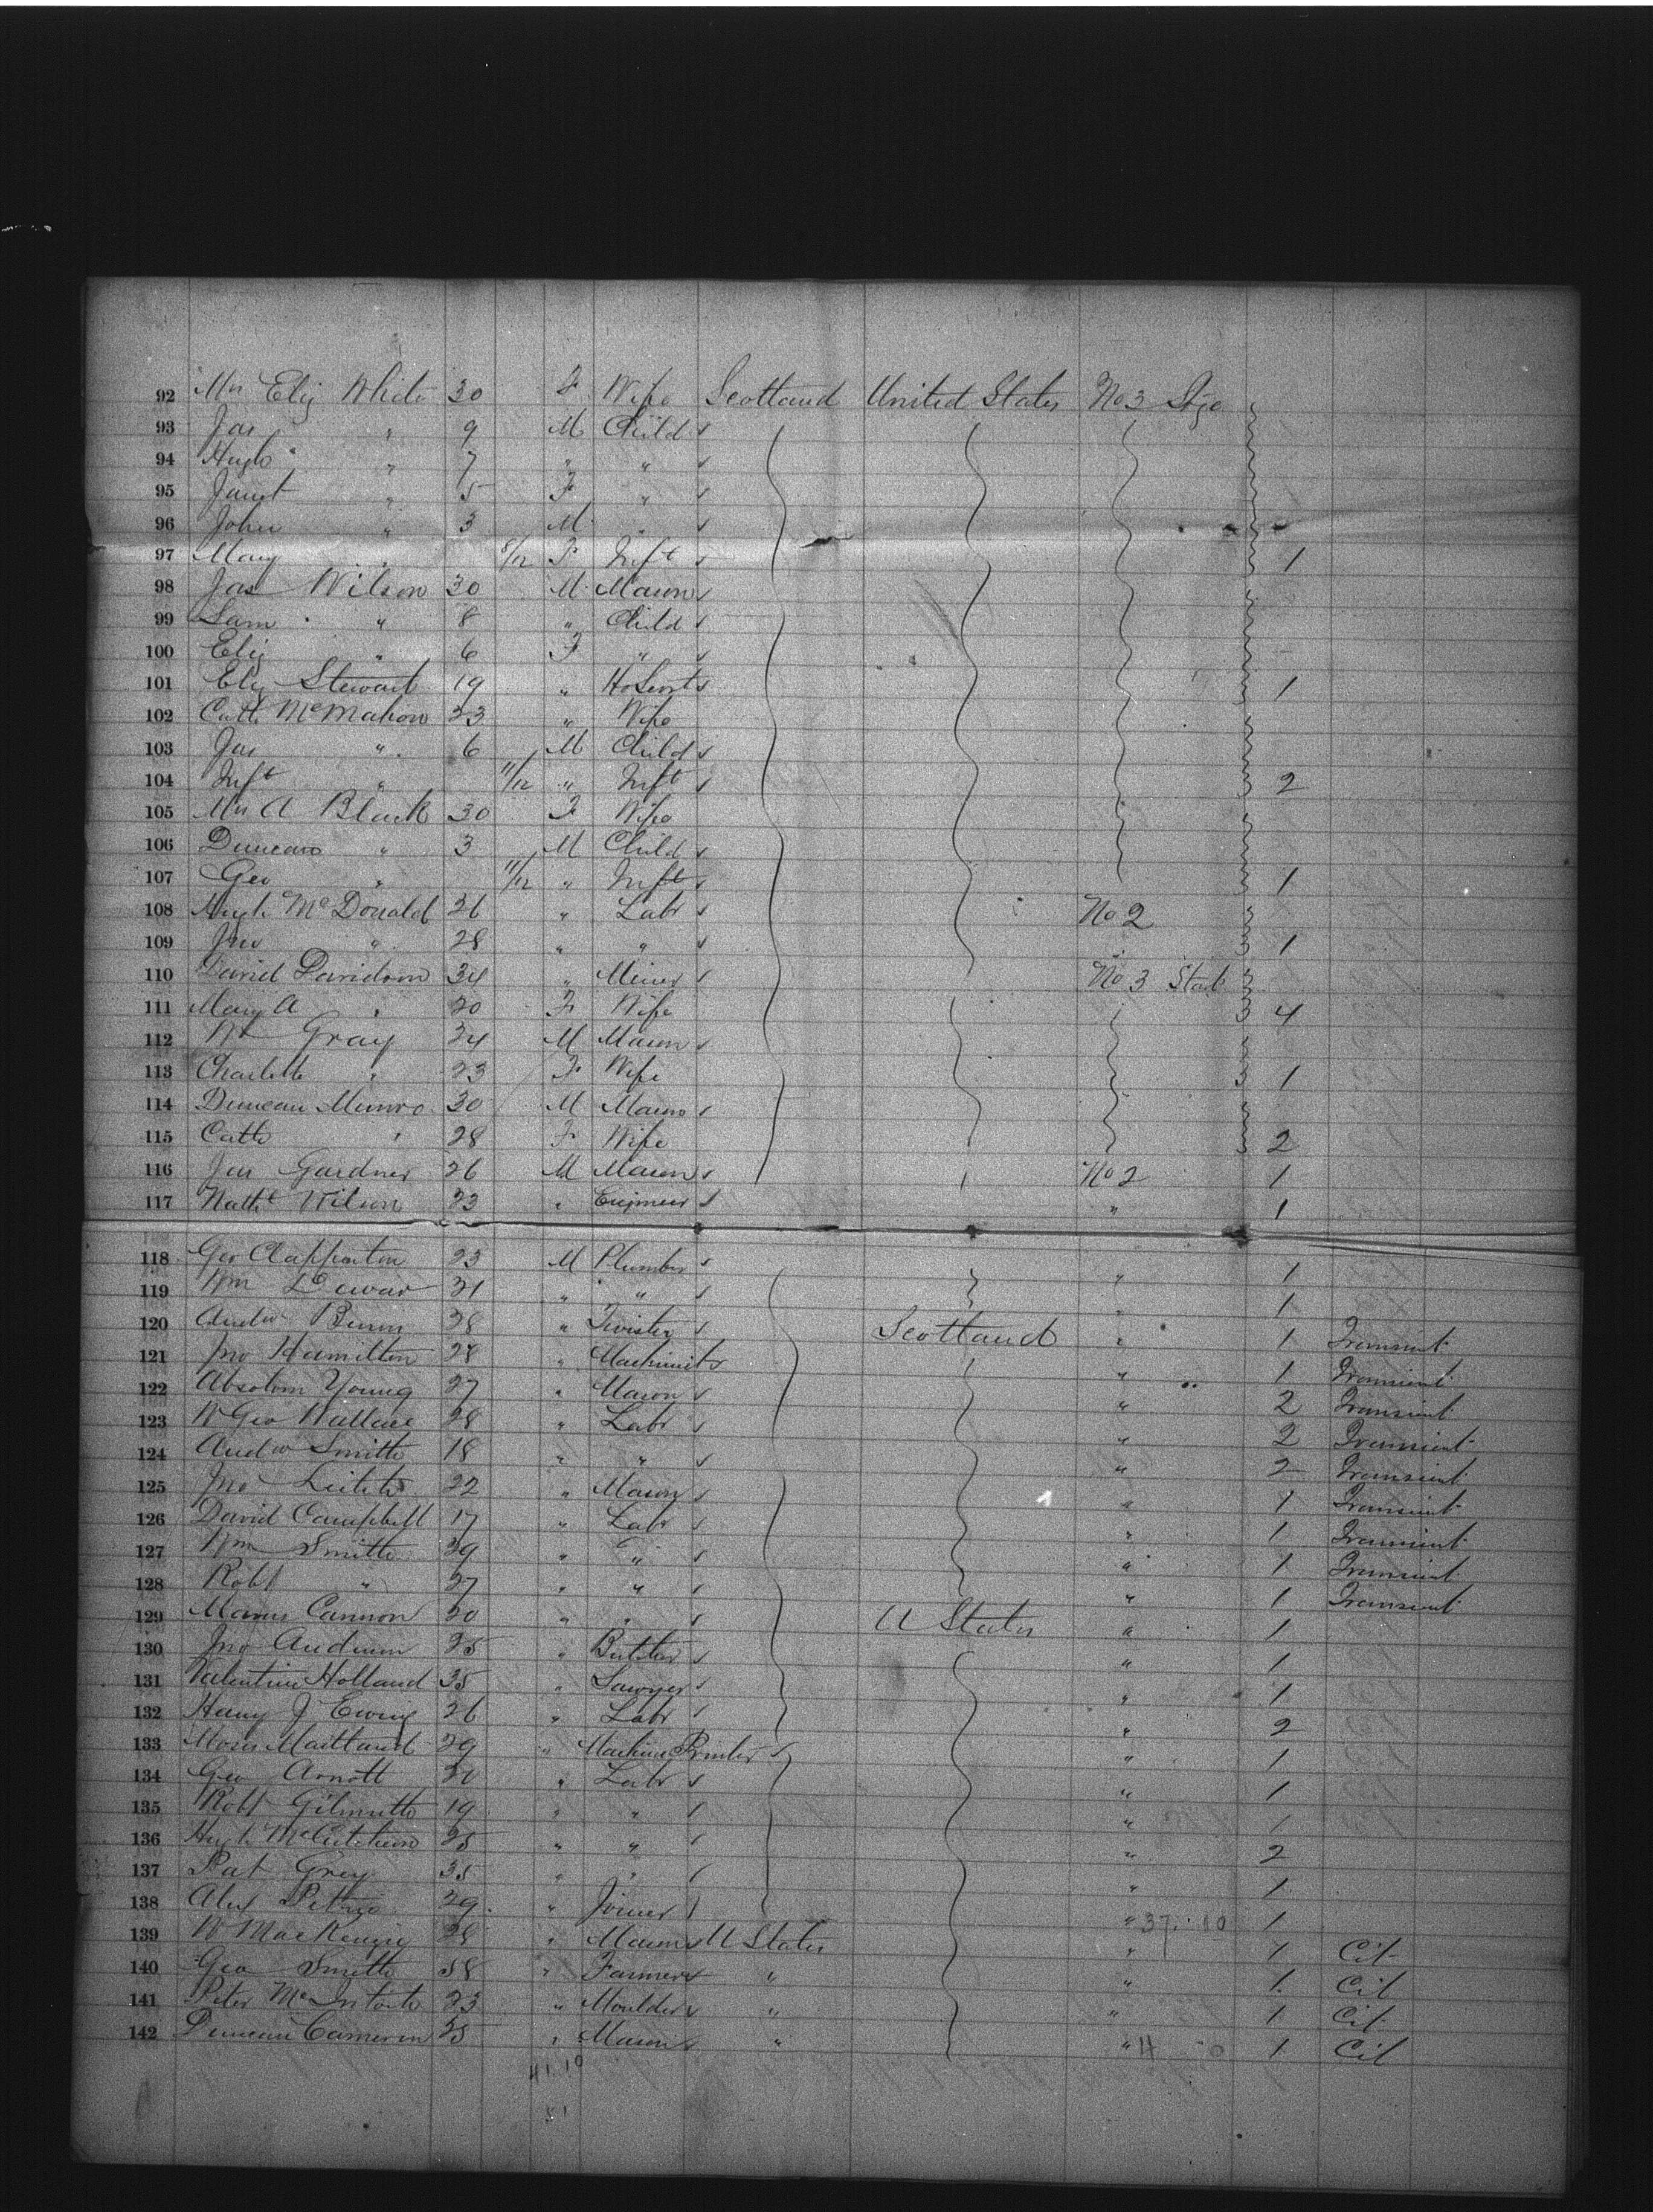 92 Mrs Eliz White 30 F Wife Scotland United States No 3 Stge
93 Jas " 9 M Child
94 Hugh " 7 " "
95 Janet " 5 F "
96 John " 3 M "
97 Mary " 8/12 F Inft 1
98 Jas Wilson 30 M Mason
99 Sam " 8 " Child
100 Eliz " 6 F "
101 Eliz Stewart 19 " 1
102 Cath McMahon 23 " Wife
103 Jas " 6 M Child
104 Inft " 11/12 " Inft 2
105 Mrs A Black 30 F Wife
106 Duncan " 3 M Child
107 Geo " 11/12 " Inft 1
108 Hugh McDonald 26 " Labr No 2
109 Jno " 28 " " " 1
110 David Davidson 34 " Miner No 3
111 Mary A " 20 F Wife 4
112 Wm Gray 24 M Mason
113 Charlotte " 23 F Wife 1
114 Duncan Munro 30 M Mason
115 Cath " 28 F Wife 2
116 Jas Gardner 26 M Mason No 2 1
117 Wilson 23 " Engineer " 1
118 Geo Clapperton 23 M Plumber " 1
119 Wm Dewar 21 " " " 1
120 Andw Binn 28 " Twister Scotland " 1 Transient
121 Jno Hamilton 28 " Machinist " 1 Transient
122 Absolom Young 27 " Mason " 2 Transient
123 W Geo Wallace 28 " Labr " 2 Transient
124 Andw Smith 18 " " " 2 Transient
125 Jno Leitch 22 " Mason " 1 Transient
126 David Campbell 17 " Labr " 1 Transient
127 Wm Smith 29 " " " 1 Transient
128 Robt " 27 " " " 1 Transient
129 Cannon 20 " " U States " 1
130 Jno 25 " " 1
131 Valentine Holland 35 " Sawyer " 1
132 Harry J Ewing 26 " Labr " 2
133 Moses Maitland 29 " Machine Printer " 1
134 Geo Arnott 20 " Labr " 1
135 Robt 19 " " " 1
136 Hugh McCutcheon 25 " " " 2
137 Pat Grey 35 " " " 1
138 Alex 29 " Joiner " 37 10 1
139 W MacKenzie 28 " Mason U States " 1 Cit
140 Geo Smith 58 " Farmer " " 1 Cit
141 Peter McIntosh 23 " Moulder " " 1 Cit
142 Duncan Cameron 25 " Mason " " 4 0 1 Cit
41 10
51